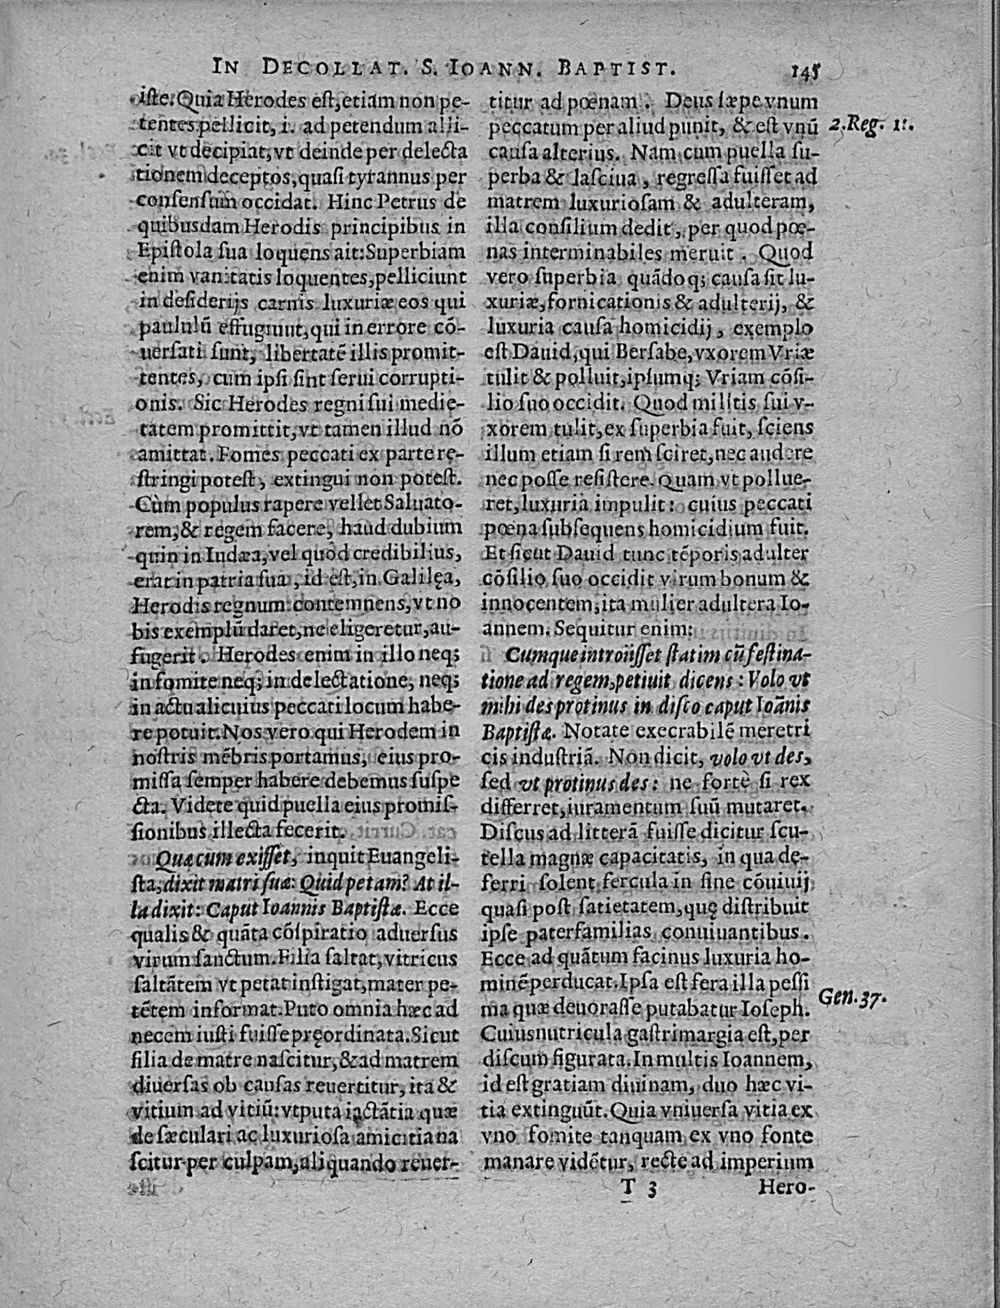 IN DECOLLAT. S. IOANN. BAPTIST. 145
iste. Quia Herodes est, etiam non pe-
tentes pellicit, i. ad petendum alli-
cit vt decipiat, vt deinde per delecta
tionem deceptos, quasi tyrannus per
consensum occidat. Hinc Petrus de
quibusdam Herodis principibus in
Epistola sua loquens ait: Superbiam
enim vanitatis loquentes, pelliciunt
in desiderijs carnis luxuriæ eos qui
paululū effugiunt, qui in errore cō-
uersati sunt, libertatē illis promit-
tentes, cum ipsi sint serui corrupti-
onis. Sic Herodes regni sui medie-
tatem promittit, vt tamen illud nō
amittat. Fomes peccati ex parte rę-
stringi potest, extingui non potest.
Cùm populus rapere vellet Saluato-
rem, & regem facere, haud dubium
quin in Iudæa, vel quod credibilius,
erat in patria sua, id est, in Galilęa,
Herodis regnum contemnens, vt no
bis exemplū daret, ne eligeretur, au-
fugerit. Herodes enim in illo neq;
in fomite neq; in delectatione, neq;
in actu alicuius peccati locum habe-
re potuit. Nos vero qui Herodem in
nostris mēbris portamus, eius pro-
missa semper habere debemus suspe
cta. Videte quid puella eius promis-
sionibus illecta fecerit.
Quæ cum exisset, inquit Euangeli-
sta, dixit matri suæ: Quid petam? At il-
la dixit: Caput Ioannis Baptistæ. Ecce
qualis & quāta cōspiratio aduersus
virum sanctum. Filia saltat, vitricus
saltātem vt petat instigat, mater pe-
tētem informat. Puto omnia hæc ad
necem iusti fuisse pręordinata. Sicut
filia de matre nascitur, & ad matrem
diuersas ob causas reuertitur, ita &
vitium ad vitiū: vtputa iactātia quæ
de sæculari ac luxuriosa amicitia na
scitur per culpam, aliquando reuer-
titur ad pœnam. Deus sæpe vnum
peccatum per aliud punit, & est vnū
causa alterius. Nam cum puella su-
perba & lasciua, regressa fuisset ad
matrem luxuriosam & adulteram,
illa consilium dedit, per quod pœ-
nas interminabiles meruit. Quod
vero superbia quādoq; causa sit lu-
xuriæ, fornicationis & adulterij, &
luxuria causa homicidij, exemplo
est Dauid, qui Bersabe, vxorem Vriæ
tulit & polluit, ipsumq; Vriam cōsi-
lio suo occidit. Quod militis sui v-
xorem tulit, ex superbia fuit, sciens
illum etiam si rem sciret, nec audere
nec posse resistere. Quam vt pollue-
ret, luxuria impulit: cuius peccati
pœna subsequens homicidium fuit.
Et sicut Dauid tunc tēporis adulter
cōsilio suo occidit virum bonum &
innocentem, ita mulier adultera Io-
annem. Sequitur enim:
Cumque introiisset statim cū festina-
tione ad regem, petiuit dicens: Volo vt
mihi des protinus in disco caput Ioānis
Baptistę. Notate execrabilē meretri
cis industriā. Non dicit, volo vt des,
sed vt protinus des: ne fortè si rex
differret, iuramentum suū mutaret.
Discus ad litterā fuisse dicitur scu-
tella magnæ capacitatis, in qua dę-
ferri solent fercula in fine cōuiuij
quasi post satietatem, quę distribuit
ipse paterfamilias conuiuantibus.
Ecce ad quātum facinus luxuria ho-
minē perducat. Ipsa est fera illa pessi
ma quæ deuorasse putabatur Ioseph.
Cuius nutricula gastrimargia est, per
discum figurata. In multis Ioannem,
id est gratiam diuinam, duo hæc vi-
tia extinguūt. Quia vniuersa vitia ex
vno fomite tanquam ex vno fonte
manare vidētur, recte ad imperium
2. Reg. 11.
Gen. 37.
T 3 Hero-